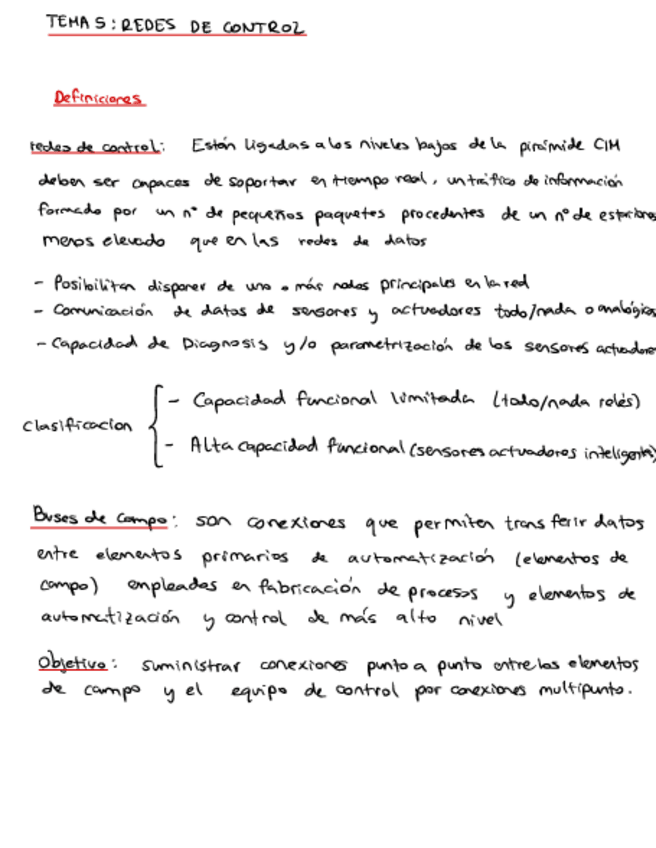 TEMA 5: REDES DE CONTROL
Definiciones
redes de control: Están ligadas a los niveles bajos de la pirámide CIM
deben ser capaces de soportar en tiempo real, un tráfico de información
formado por un nº de pequeños paquetes procedentes de un nº de estaciones
menos elevado que en las redes de datos
- Posibilitan disponer de uno o más nodos principales en la red
- Comunicación de datos de sensores y actuadores todo/nada o analógicos
- Capacidad de Diagnosis y/o parametrización de los sensores actuadores
Clasificacion
- Capacidad funcional limitada (todo/nada relés)
- Alta capacidad funcional (sensores actuadores inteligentes)
Buses de campo: son conexiones que permiten transferir datos
entre elementos primarios de automatización (elementos de
campo) empleadas en fabricación de procesos y elementos de
automatización y control de más alto nivel
Objetivo: suministrar conexiones punto a punto entre los elementos
de campo y el equipo de control por conexiones multipunto.